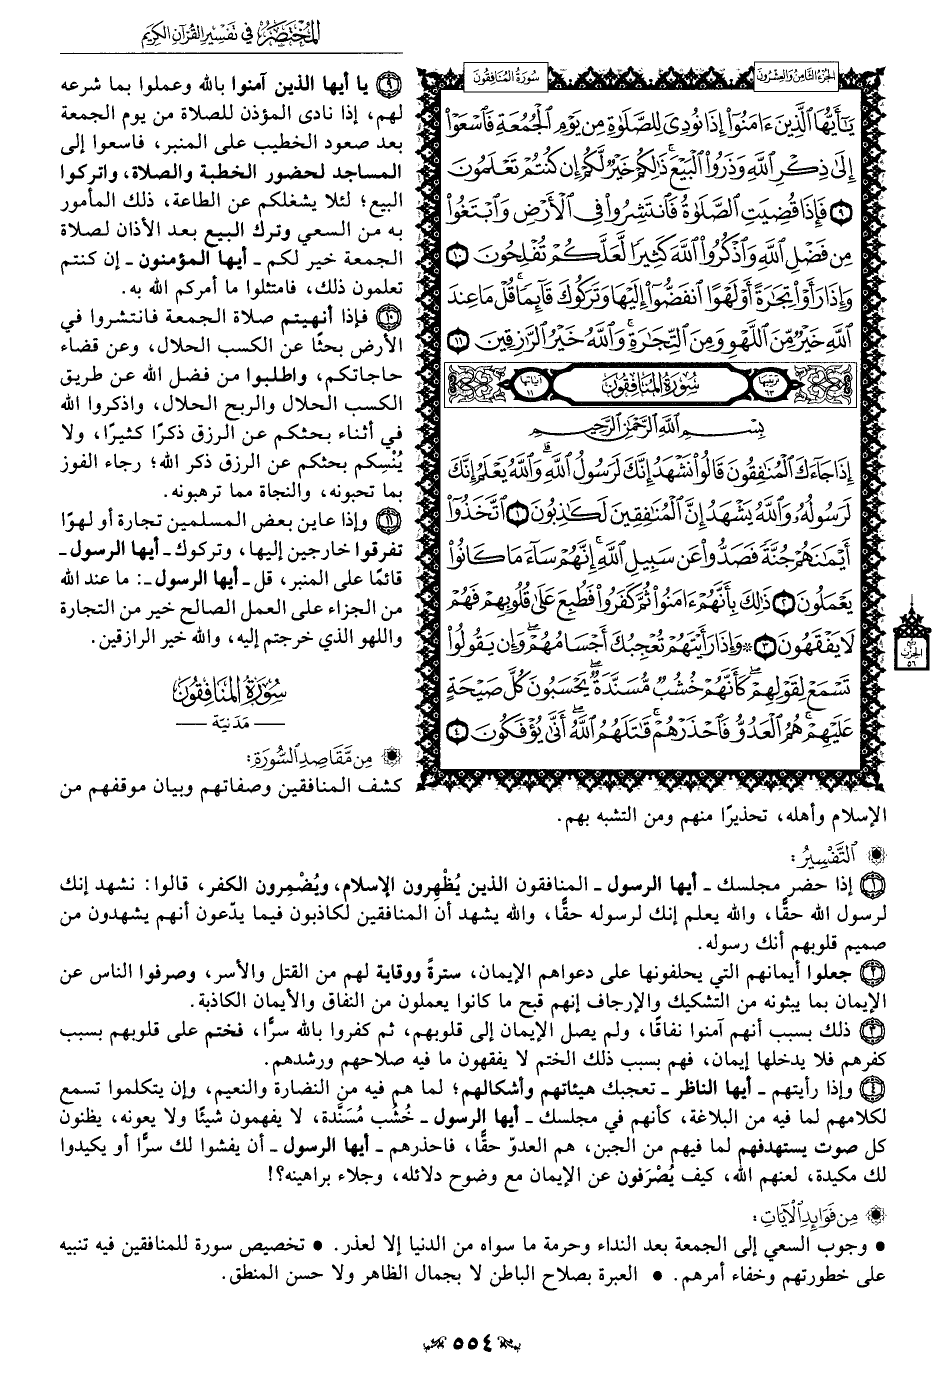 المختصر في تفسير القرآن الكريم
الجزء الثامن والعشرون
سورة المنافقون
يَٰٓأَيُّهَا ٱلَّذِينَ ءَامَنُوٓاْ إِذَا نُودِيَ لِلصَّلَوٰةِ مِن يَوْمِ ٱلْجُمُعَةِ فَٱسْعَوْاْ
إِلَىٰ ذِكْرِ ٱللَّهِ وَذَرُواْ ٱلْبَيْعَ ۚ ذَٰلِكُمْ خَيْرٌ لَّكُمْ إِن كُنتُمْ تَعْلَمُونَ
٩ فَإِذَا قُضِيَتِ ٱلصَّلَوٰةُ فَٱنتَشِرُواْ فِي ٱلْأَرْضِ وَٱبْتَغُواْ
مِن فَضْلِ ٱللَّهِ وَٱذْكُرُواْ ٱللَّهَ كَثِيرًا لَّعَلَّكُمْ تُفْلِحُونَ ١٠
وَإِذَا رَأَوْاْ تِجَٰرَةً أَوْ لَهْوًا ٱنفَضُّوٓاْ إِلَيْهَا وَتَرَكُوكَ قَآئِمًا ۚ قُلْ مَا عِندَ
ٱللَّهِ خَيْرٌ مِّنَ ٱللَّهْوِ وَمِنَ ٱلتِّجَٰرَةِ ۚ وَٱللَّهُ خَيْرُ ٱلرَّٰزِقِينَ ١١
ترتيبها ٦٣ سورة المنافقون آياتها ١١
بِسْمِ ٱللَّهِ ٱلرَّحْمَٰنِ ٱلرَّحِيمِ
إِذَا جَآءَكَ ٱلْمُنَٰفِقُونَ قَالُواْ نَشْهَدُ إِنَّكَ لَرَسُولُ ٱللَّهِ ۗ وَٱللَّهُ يَعْلَمُ إِنَّكَ
لَرَسُولُهُۥ وَٱللَّهُ يَشْهَدُ إِنَّ ٱلْمُنَٰفِقِينَ لَكَٰذِبُونَ ١ ٱتَّخَذُوٓاْ
أَيْمَٰنَهُمْ جُنَّةً فَصَدُّواْ عَن سَبِيلِ ٱللَّهِ ۚ إِنَّهُمْ سَآءَ مَا كَانُواْ
يَعْمَلُونَ ٢ ذَٰلِكَ بِأَنَّهُمْ ءَامَنُواْ ثُمَّ كَفَرُواْ فَطُبِعَ عَلَىٰ قُلُوبِهِمْ فَهُمْ
لَا يَفْقَهُونَ ٣ ۞ وَإِذَا رَأَيْتَهُمْ تُعْجِبُكَ أَجْسَامُهُمْ ۖ وَإِن يَقُولُواْ
تَسْمَعْ لِقَوْلِهِمْ ۖ كَأَنَّهُمْ خُشُبٌ مُّسَنَّدَةٌ ۖ يَحْسَبُونَ كُلَّ صَيْحَةٍ
عَلَيْهِمْ ۚ هُمُ ٱلْعَدُوُّ فَٱحْذَرْهُمْ ۚ قَٰتَلَهُمُ ٱللَّهُ ۖ أَنَّىٰ يُؤْفَكُونَ ٤
الحزب ٥٦
٩ يا أيها الذين آمنوا بالله وعملوا بما شرعه
لهم، إذا نادى المؤذن للصلاة من يوم الجمعة
بعد صعود الخطيب على المنبر، فاسعوا إلى
المساجد لحضور الخطبة والصلاة، واتركوا
البيع؛ لئلا يشغلكم عن الطاعة، ذلك المأمور
به من السعي وترك البيع بعد الأذان لصلاة
الجمعة خير لكم ـ أيها المؤمنون ـ إن كنتم
تعلمون ذلك، فامتثلوا ما أمركم الله به.
١٠ فإذا أنهيتم صلاة الجمعة فانتشروا في
الأرض بحثًا عن الكسب الحلال، وعن قضاء
حاجاتكم، واطلبوا من فضل الله عن طريق
الكسب الحلال والربح الحلال، واذكروا الله
في أثناء بحثكم عن الرزق ذكرًا كثيرًا، ولا
يُنْسِكم بحثكم عن الرزق ذكر الله؛ رجاء الفوز
بما تحبونه، والنجاة مما ترهبونه.
١١ وإذا عاين بعض المسلمين تجارة أو لهوًا
تفرقوا خارجين إليها، وتركوك ـ أيها الرسول ـ
قائمًا على المنبر، قل ـ أيها الرسول ـ: ما عند الله
من الجزاء على العمل الصالح خير من التجارة
واللهو الذي خرجتم إليه، والله خير الرازقين.
سورة المنافقون
— مدنية —
من مقاصد السورة:
كشف المنافقين وصفاتهم وبيان موقفهم من
الإسلام وأهله، تحذيرًا منهم ومن التشبه بهم.
التفسير:
١ إذا حضر مجلسك ـ أيها الرسول ـ المنافقون الذين يُظْهِرون الإسلام، ويُضْمِرون الكفر، قالوا: نشهد إنك
لرسول الله حقًّا، والله يعلم إنك لرسوله حقًّا، والله يشهد أن المنافقين لكاذبون فيما يدّعون أنهم يشهدون من
صميم قلوبهم أنك رسوله.
٢ جعلوا أيمانهم التي يحلفونها على دعواهم الإيمان، سترةً ووقاية لهم من القتل والأسر، وصرفوا الناس عن
الإيمان بما يبثونه من التشكيك والإرجاف إنهم قبح ما كانوا يعملون من النفاق والأيمان الكاذبة.
٣ ذلك بسبب أنهم آمنوا نفاقًا، ولم يصل الإيمان إلى قلوبهم، ثم كفروا بالله سرًّا، فختم على قلوبهم بسبب
كفرهم فلا يدخلها إيمان، فهم بسبب ذلك الختم لا يفقهون ما فيه صلاحهم ورشدهم.
٤ وإذا رأيتهم ـ أيها الناظر ـ تعجبك هيئاتهم وأشكالهم؛ لما هم فيه من النضارة والنعيم، وإن يتكلموا تسمع
لكلامهم لما فيه من البلاغة، كأنهم في مجلسك ـ أيها الرسول ـ خُشُب مُسَنَّدة، لا يفهمون شيئًا ولا يعونه، يظنون
كل صوت يستهدفهم لما فيهم من الجبن، هم العدوّ حقًّا، فاحذرهم ـ أيها الرسول ـ أن يفشوا لك سرًّا أو يكيدوا
لك مكيدة، لعنهم الله، كيف يُصْرَفون عن الإيمان مع وضوح دلائله، وجلاء براهينه؟!
من فوائد الآيات:
• وجوب السعي إلى الجمعة بعد النداء وحرمة ما سواه من الدنيا إلا لعذر. • تخصيص سورة للمنافقين فيه تنبيه
على خطورتهم وخفاء أمرهم. • العبرة بصلاح الباطن لا بجمال الظاهر ولا حسن المنطق.
٥٥٤